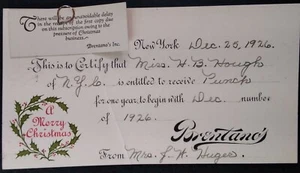 There will be an unavoidable delay
in the receipt of the first copy due
on this subscription owing to the
pressure of Christmas
business.
Brentano's Inc.
New York Dec. 25, 1926.
This is to Certify that Miss. H. B. Hough
of N.Y.C. is entitled to receive Punch
for one year, to begin with Dec. number
of 1926.
A
Merry
Christmas
Brentano's
From Mrs. J. H.